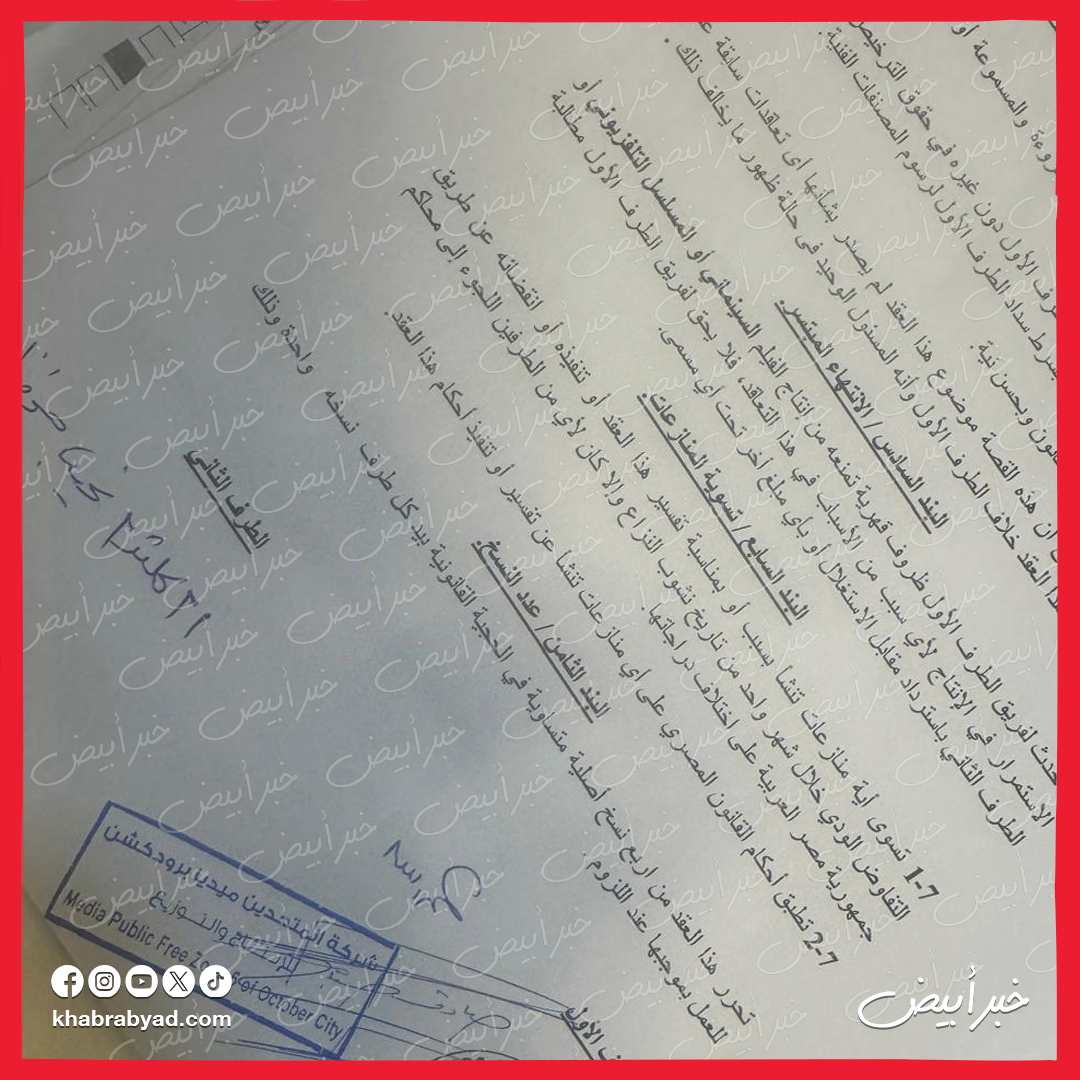 روءة والمسموعة أو
طرف الأول دون غيره في حقوق الترخيص
بشرط سداد الطرف الأول لرسوم المصنفات الفنية.
ان هذه القصة موضوع هذا العقد لم يصدر بشأنها أى تعاقدات سابقة
هذا العقد خلاف الطرف الأول وأنه المسئول الوحيد فى حالة ظهور ما يخالف ذلك .
وبحسن نية.
البند السادس / الانتهاء المبتسر:
حدث لفريق الطرف الأول ظروف قهرية تمنعه من إنتاج الفيلم السينمائي أو المسلسل التلفزيوني أو
الاستمرار في الإنتاج لأي سبب من الأسباب في هذا التعاقد، فلا يحق لفريق الطرف الأول مطالبة
الطرف الثاني باسترداد مقابل الاستغلال أو بأي مبلغ آخر تحت أي مسمى.
البند السابع / تسوية المنازعات:
1-7 تسوى أية منازعات تنشأ بسبب أو بمناسبة تفسير هذا العقد أو تنفيذه أو انقضائه عن طريق
التفاوض الودي خلال شهر واحد من تاريخ نشوب النزاع وإلا كان لأي من الطرفين اللجوء إلى محاكم
جمهورية مصر العربية على اختلاف دراجاتها.
2-7 تطبق أحكام القانون المصري على أي منازعات تنشأ عن تفسير أو تنفيذ أحكام هذا العقد.
البند الثامن / عدد النسخ:
تحرر هذا العقد من اربع نسخ أصلية متساوية في الحجية القانونية بيد كل طرف نسخه واحدة وذلك
للعمل بموجبها عند اللزوم .
الطرف الثاني
ف الأول
شركة المتحدين ميديا برودكشن
للإنتاج والتوزيع
Media Public Free Zone 6 of October City
khabrabyad.com
خبر أبيض